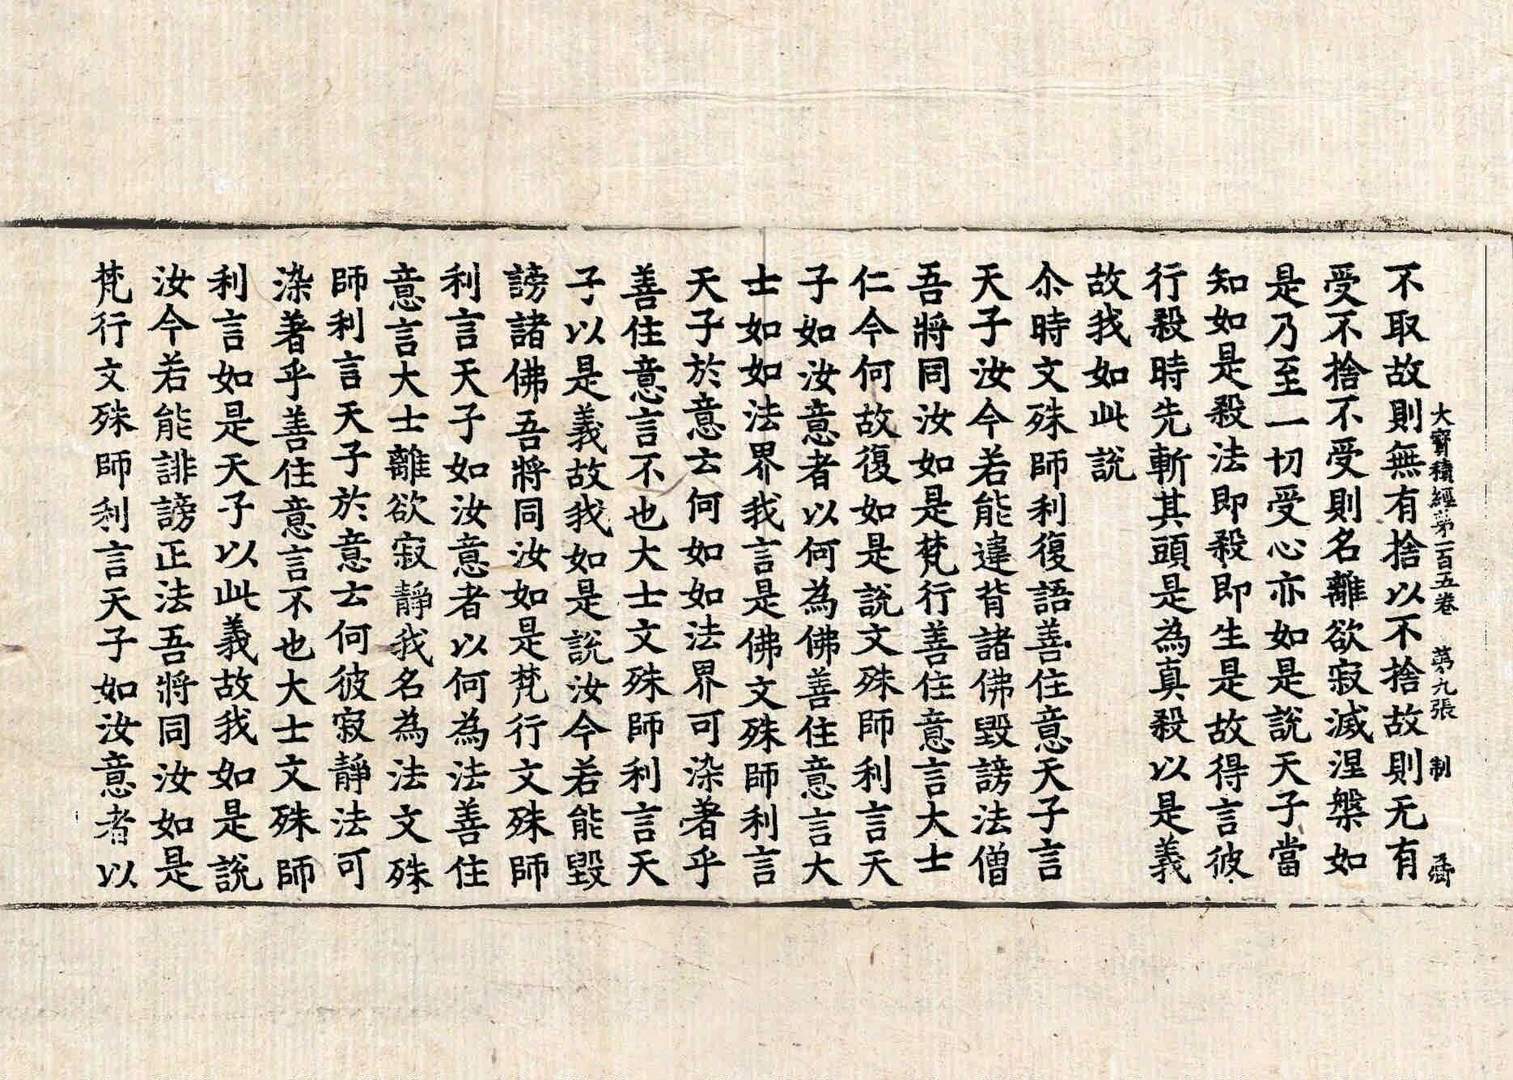 大寶積經第一百五卷 第九張 制 齊
不取故則無有捨以不捨故則无有
受不捨不受則名離欲寂滅涅槃如
是乃至一切受心亦如是說天子當
知如是殺法即殺即生是故得言彼
行殺時先斬其頭是為真殺以是義
故我如此說
尒時文殊師利復語善住意天子言
天子汝今若能違背諸佛毀謗法僧
吾將同汝如是梵行善住意言大士
仁今何故復如是說文殊師利言天
子如汝意者以何為佛善住意言大
士如如法界我言是佛文殊師利言
天子於意云何如如法界可染著乎
善住意言不也大士文殊師利言天
子以是義故我如是說汝今若能毀
謗諸佛吾將同汝如是梵行文殊師
利言天子如汝意者以何為法善住
意言大士離欲寂靜我名為法文殊
師利言天子於意云何彼寂靜法可
染著乎善住意言不也大士文殊師
利言如是天子以此義故我如是說
汝今若能誹謗正法吾將同汝如是
梵行文殊師利言天子如汝意者以